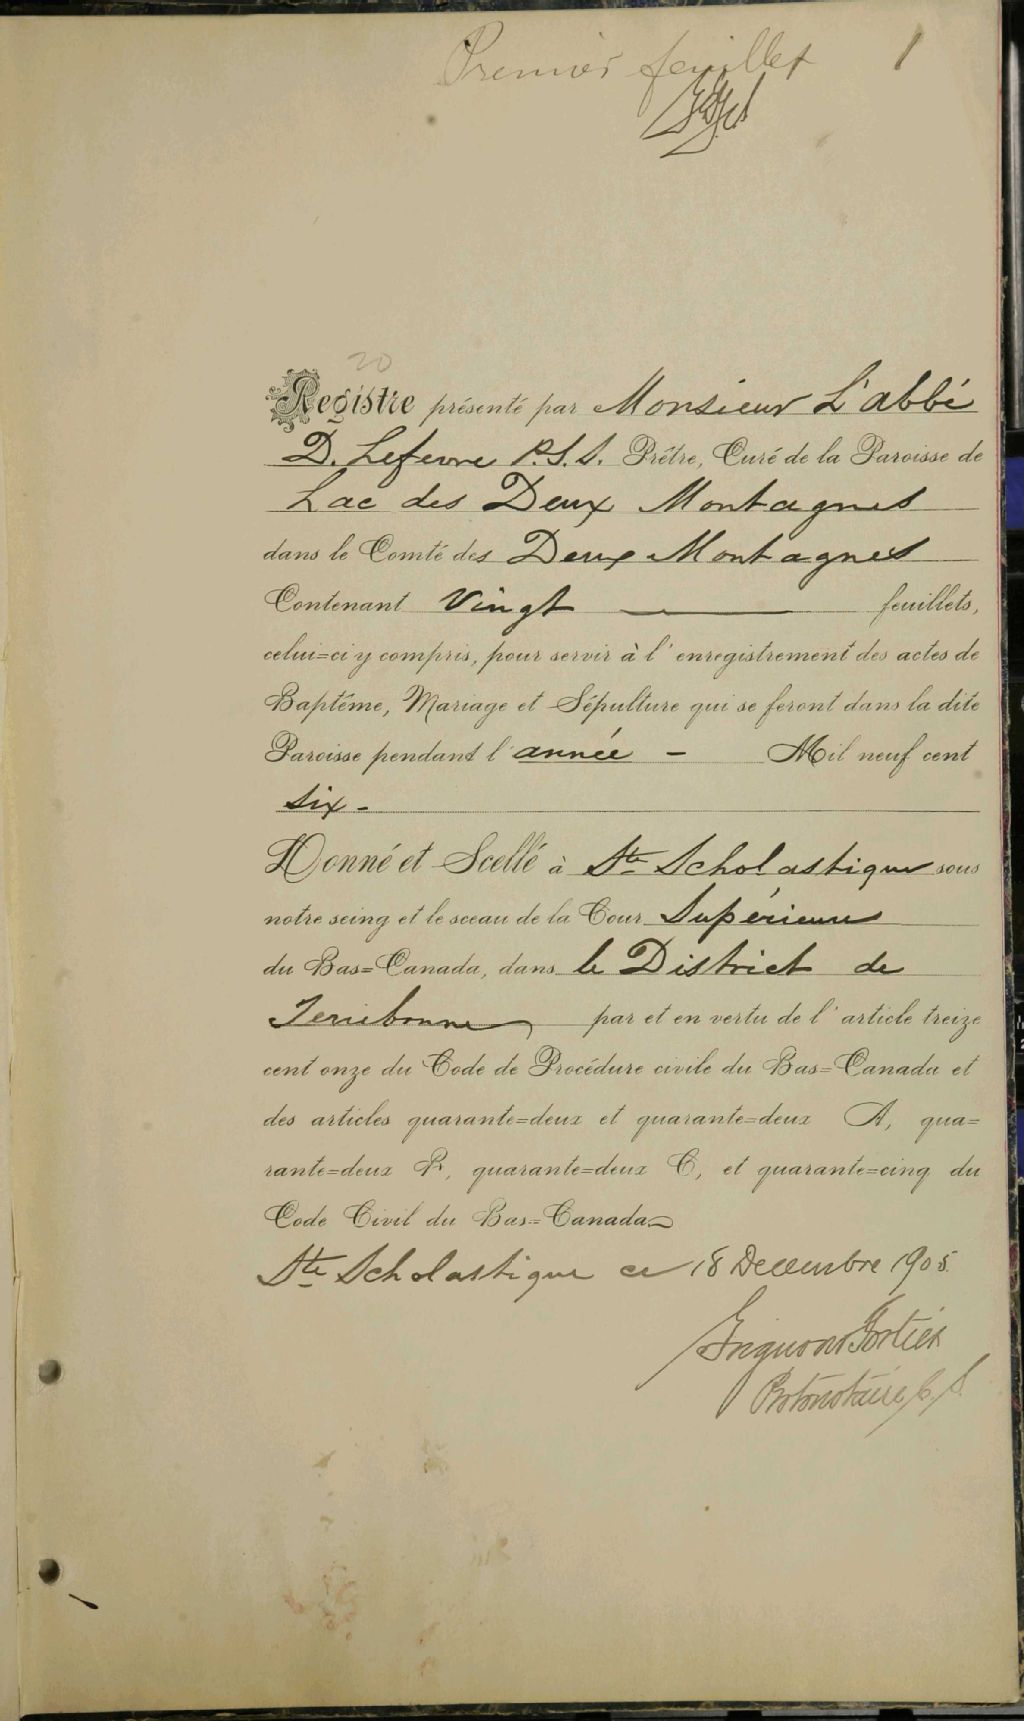 Premier feuillet 1
20
Registre présenté par Monsieur L'abbé
D. Lefevre P.S.S. Prêtre, Curé de la Paroisse de
Lac des Deux Montagnes
dans le Comté des Deux Montagnes
Contenant Vingt feuillets,
celui=ci y compris, pour servir à l'enregistrement des actes de
Baptême, Mariage et Sépulture qui se feront dans la dite
Paroisse pendant l'année - Mil neuf cent
six -
Donné et Scellé à Ste Scholastique sous
notre seing et le sceau de la Cour Supérieure
du Bas=Canada, dans le District de
Terrebonne, par et en vertu de l'article treize
cent onze du Code de Procédure civile du Bas=Canada et
des articles quarante=deux et quarante=deux A, qua=
rante=deux B, quarante=deux C, et quarante=cinq du
Code Civil du Bas=Canada.
Ste Scholastique ce 18 Decembre 1905.
Grignon & Fortier
Protonotaire C. S.